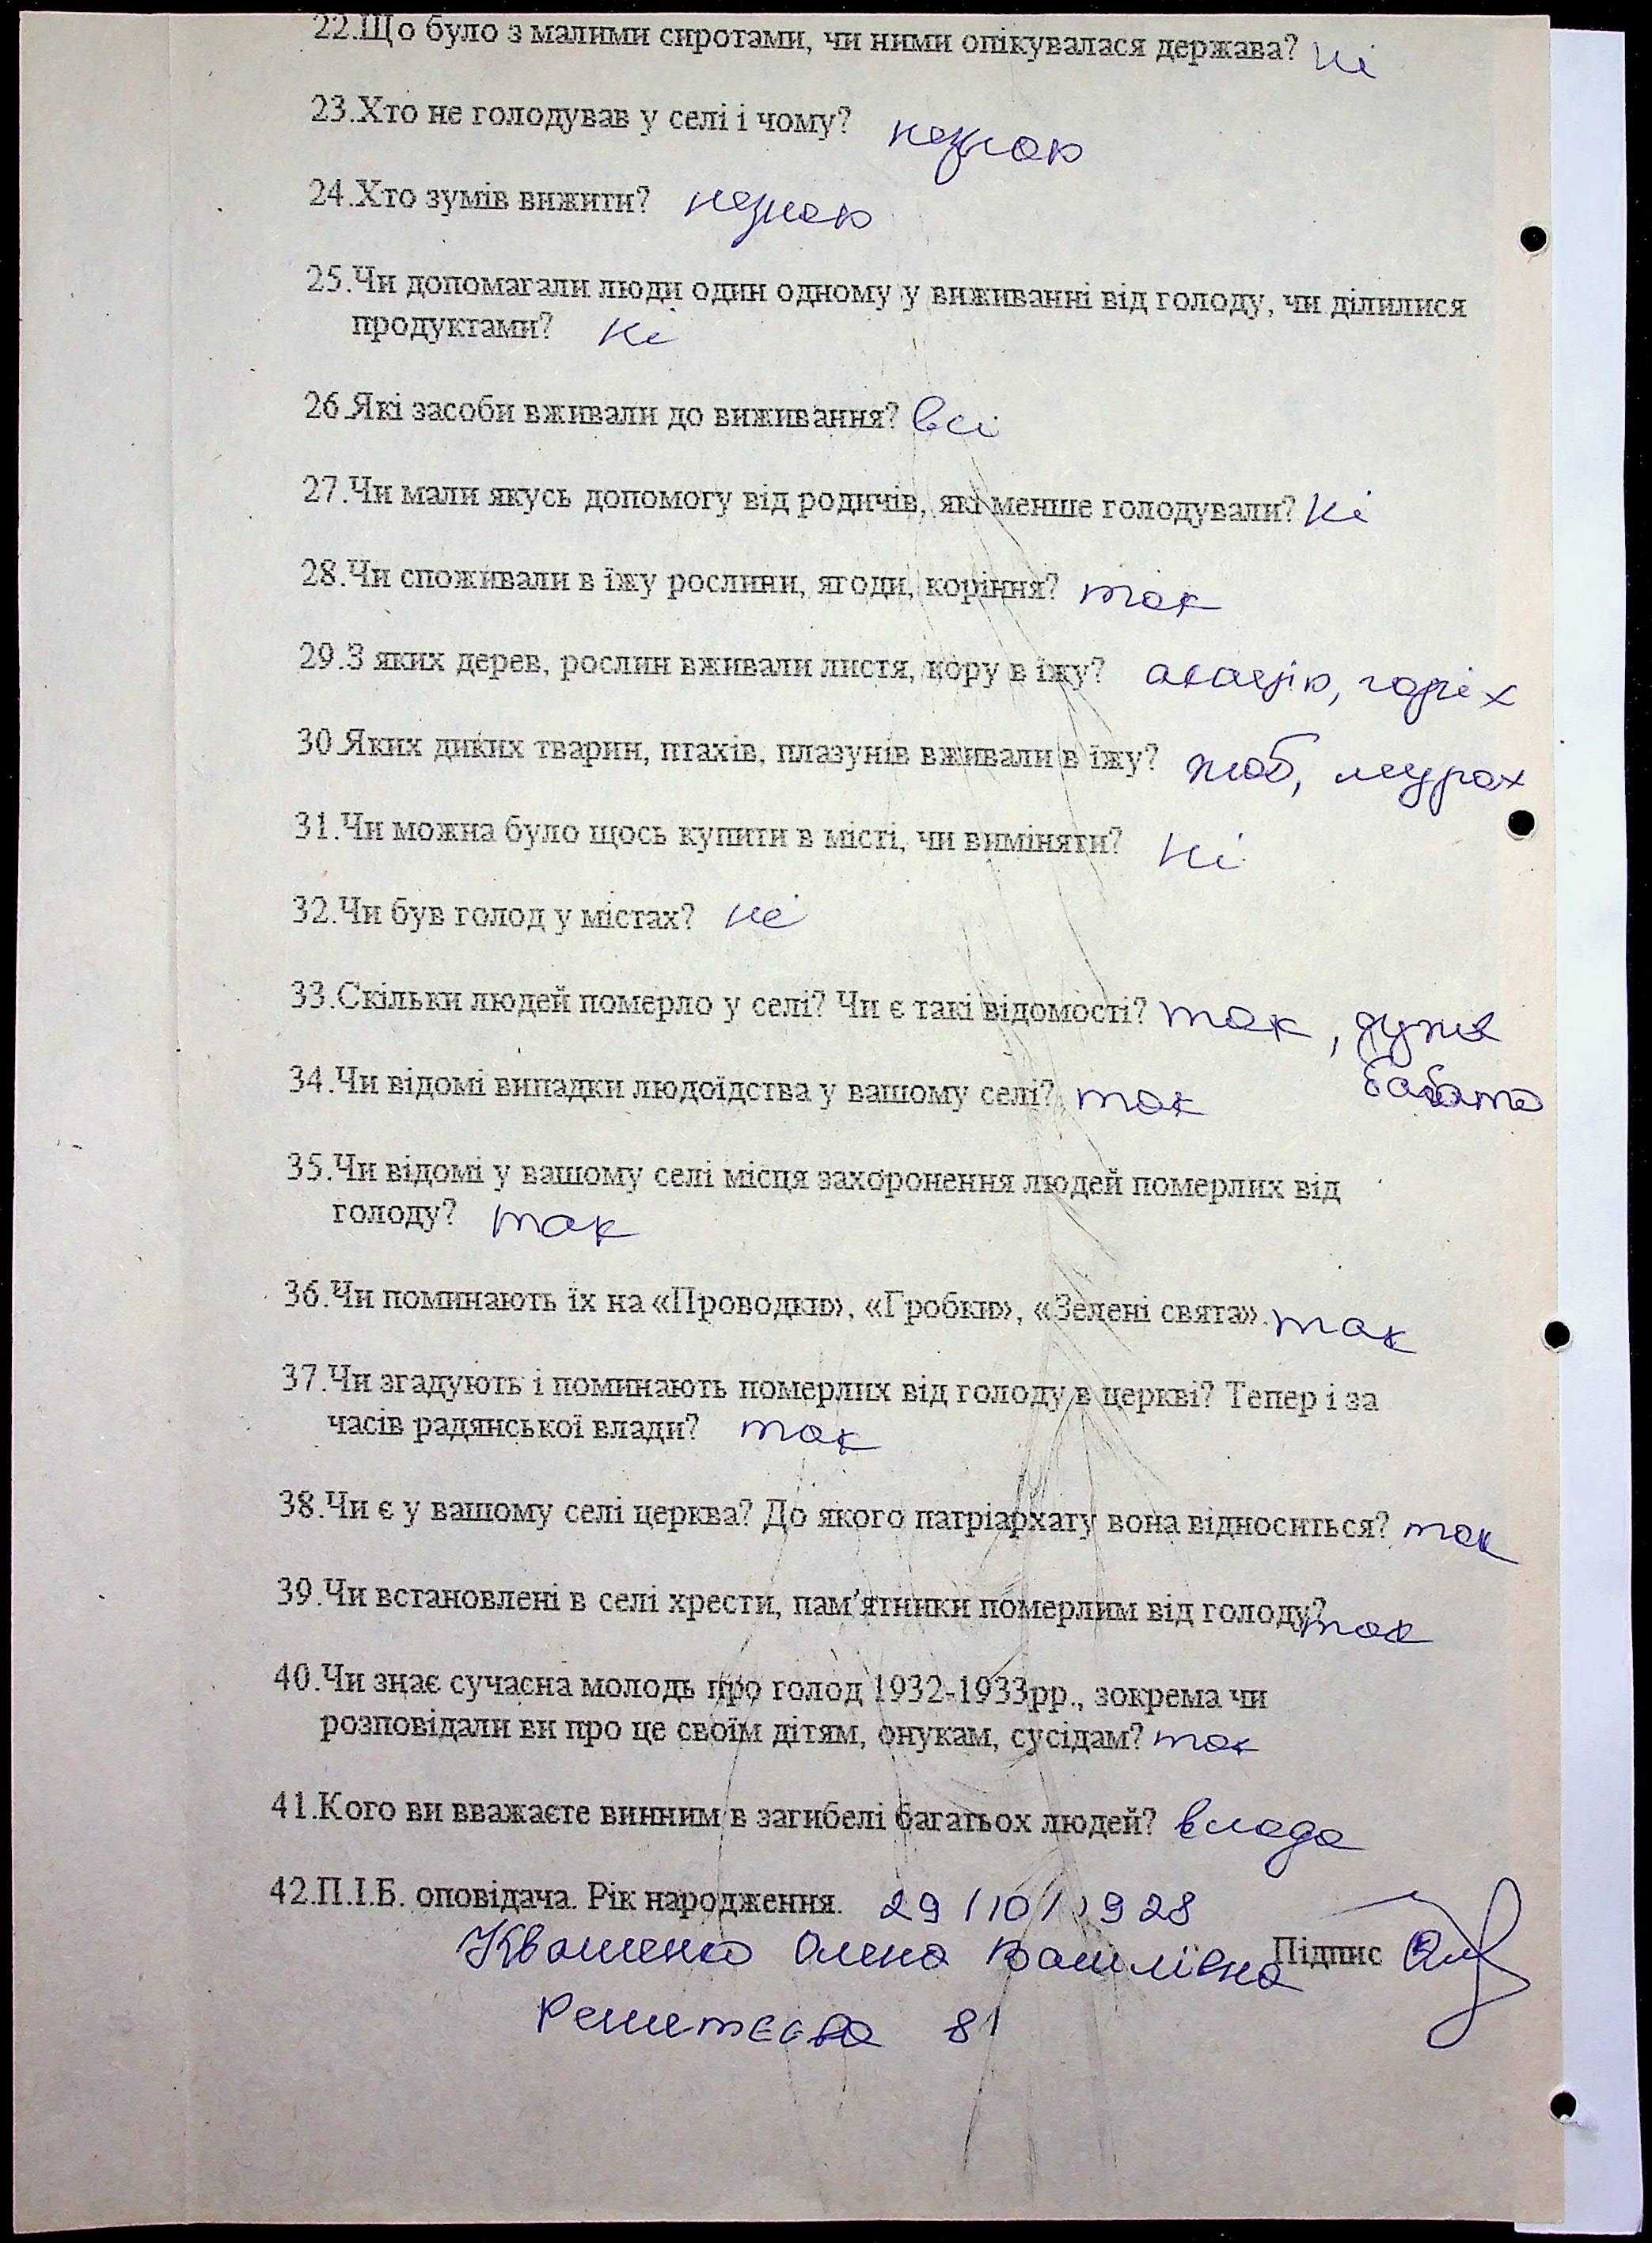 22.Що було з малими сиротами, чи ними опікувалася держава? ні
23.Хто не голодував у селі і чому? незнаю
24.Хто зумів вижити? незнаю
25.Чи допомагали люди один одному у виживанні від голоду, чи ділилися
продуктами? ні
26.Які засоби вживали до виживання? всі
27.Чи мали якусь допомогу від родичів, які менше голодували? ні
28.Чи споживали в їжу рослини, ягоди, коріння? так
29.З яких дерев, рослин вживали листя, кору в їжу? акацію, горіх
30.Яких диких тварин, птахів, плазунів вживали в їжу? жаб, мурах
31.Чи можна було щось купити в місті, чи виміняти? ні
32.Чи був голод у містах? ні
33.Скільки людей померло у селі? Чи є такі відомості? так, дуже
багато
34.Чи відомі випадки людоїдства у вашому селі? так
35.Чи відомі у вашому селі місця захоронення людей померлих від
голоду? так
36.Чи поминають їх на «Проводки», «Гробки», «Зелені свята». так
37.Чи згадують і поминають померлих від голоду в церкві? Тепер і за
часів радянської влади? так
38.Чи є у вашому селі церква? До якого патріархату вона відноситься? так
39.Чи встановлені в селі хрести, пам'ятники померлим від голоду? так
40.Чи знає сучасна молодь про голод 1932-1933рр., зокрема чи
розповідали ви про це своїм дітям, онукам, сусідам? так
41.Кого ви вважаєте винним в загибелі багатьох людей? влада
42.П.І.Б. оповідача. Рік народження. 29/10/1928
Квашенко Олена Василівна Підпис
81